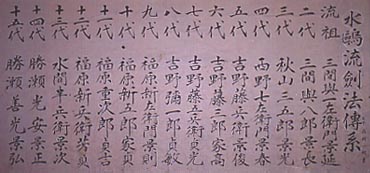 水鷗流劍法傳系
流祖 三間與一左衛門景延
二代 三間與八郎景長
三代 秋山三五郎景光
四代 西野七左衛門景春
五代 吉野藤五兵衛景俊
六代 吉野藤三郎家高
七代 吉野藤五兵衛景光
八代 吉野彌一郎貞敏
九代 福原新左衛門景則
十代 福原新五郎家貞
十一代 福原重次郎貞吉
十二代 福原新兵衛
十三代 水間半兵衛景次
十四代 勝瀬光安景正
十五代 勝瀬善光景弘